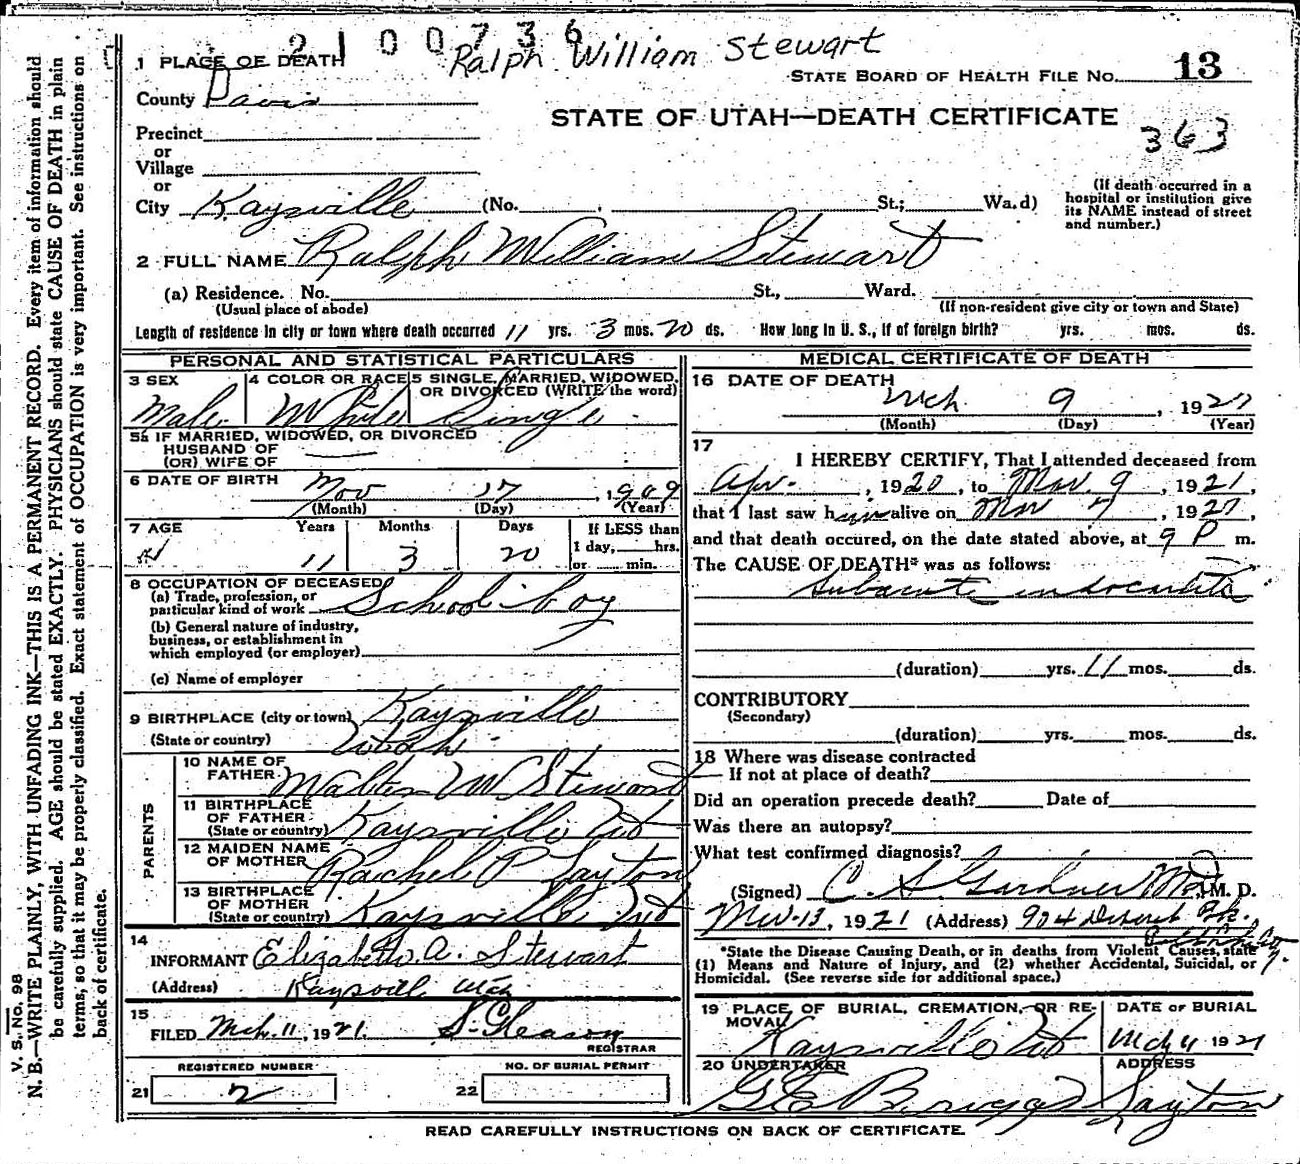 2100736
Ralph William Stewart
1 PLACE OF DEATH
STATE BOARD OF HEALTH FILE No. 13
County Davis
STATE OF UTAH—DEATH CERTIFICATE
363
Precinct
or
Village
or
City Kaysville (No. St.; Wa.d)
(If death occurred in a hospital or institution give its NAME instead of street and number.)
2 FULL NAME Ralph William Stewart
(a) Residence. No. St., Ward.
(Usual place of abode) (If non-resident give city or town and State)
Length of residence in city or town where death occurred 11 yrs. 3 mos. 20 ds. How long in U. S., if of foreign birth? yrs. mos. ds.
PERSONAL AND STATISTICAL PARTICULARS
3 SEX
Male
4 COLOR OR RACE
White
5 SINGLE, MARRIED, WIDOWED, OR DIVORCED (WRITE the word)
Single
5a IF MARRIED, WIDOWED, OR DIVORCED
HUSBAND OF
(OR) WIFE OF
6 DATE OF BIRTH Nov 17, 1909
(Month) (Day) (Year)
7 AGE
Years Months Days
11 3 20
If LESS than
1 day, hrs.
or min.
8 OCCUPATION OF DECEASED
(a) Trade, profession, or
particular kind of work School boy
(b) General nature of industry,
business, or establishment in
which employed (or employer)
(c) Name of employer
9 BIRTHPLACE (city or town) Kaysville
(State or country) Utah
PARENTS
10 NAME OF
FATHER Walter W Stewart
11 BIRTHPLACE
OF FATHER
(State or country) Kaysville Ut
12 MAIDEN NAME
OF MOTHER Rachel P Layton
13 BIRTHPLACE
OF MOTHER
(State or country) Kaysville Ut
14
INFORMANT Elizabeth A. Stewart
(Address) Kaysville Utah
15
FILED Mch. 11, 1921. S. Gleason
REGISTRAR
REGISTERED NUMBER
21 2
NO. OF BURIAL PERMIT
22
MEDICAL CERTIFICATE OF DEATH
16 DATE OF DEATH
Mch 9, 1921
(Month) (Day) (Year)
17
I HEREBY CERTIFY, That I attended deceased from
Apr., 1920, to Mar. 9, 1921,
that I last saw him alive on Mar 7, 1921,
and that death occured, on the date stated above, at 9 P m.
The CAUSE OF DEATH* was as follows:
Subacute endocarditis
(duration) yrs. 11 mos. ds.
CONTRIBUTORY
(Secondary)
(duration) yrs. mos. ds.
18 Where was disease contracted
If not at place of death?
Did an operation precede death? Date of
Was there an autopsy?
What test confirmed diagnosis?
(Signed) C. S. Gardner M.D., M. D.
Mar. 13, 1921 (Address) 904 Deseret Bk.
*State the Disease Causing Death, or in deaths from Violent Causes, state
(1) Means and Nature of Injury, and (2) whether Accidental, Suicidal, or
Homicidal. (See reverse side for additional space.)
19 PLACE OF BURIAL, CREMATION, OR RE-
MOVAL
Kaysville Ut
DATE OF BURIAL
Mch 11 1921
20 UNDERTAKER
ADDRESS
Layton
READ CAREFULLY INSTRUCTIONS ON BACK OF CERTIFICATE.
V. S. No. 98
N. B.—WRITE PLAINLY, WITH UNFADING INK—THIS IS A PERMANENT RECORD. Every item of information should
be carefully supplied. AGE should be stated EXACTLY. PHYSICIANS should state CAUSE OF DEATH in plain
terms, so that it may be properly classified. Exact statement of OCCUPATION is very important. See instructions on
back of certificate.